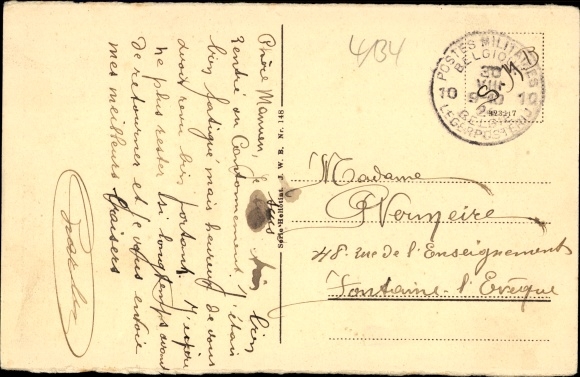 Chère Maman, Je suis très bien
rentré au Cantonnement. J'étais
bien fatigué mais heureux de vous
avoir revu bien portant. J'espère
ne plus rester si longtemps avant
de retourner et je vous envoie
mes meilleurs baisers
4/34
POSTES MILITAIRES
BELGIQUE
30
VIII
10 10
BELGIE
LEGERPOSTERIJ
S.M.
Madame
Vermeire
48. rue de l'Enseignement
Fontaine-l'Evêque